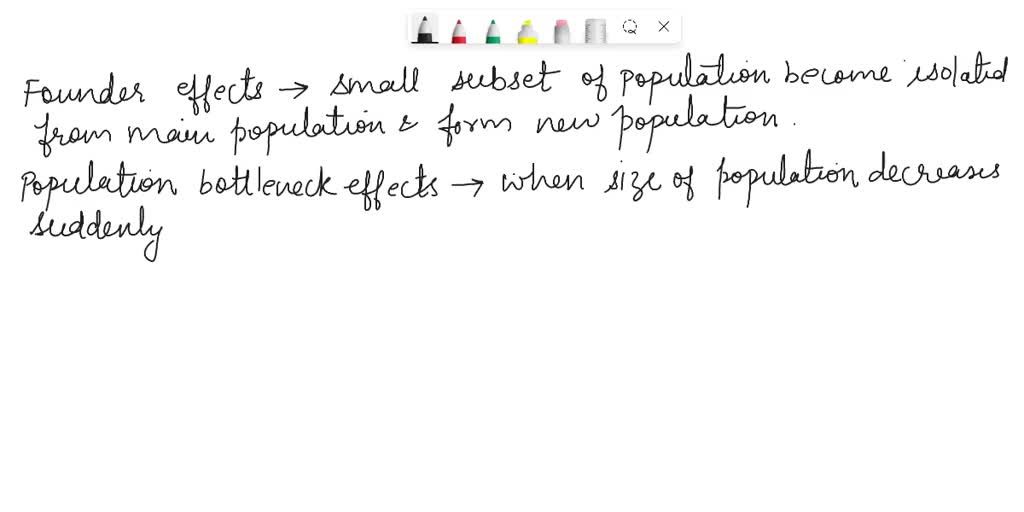 Founder effects → small subset of population become isolated
from main population & form new population.
Population bottleneck effects → when size of population decreases
suddenly